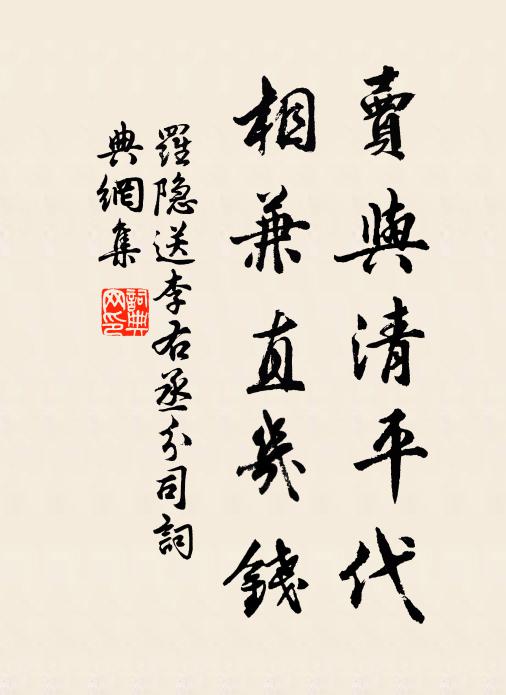 賣與清平代
相兼直幾錢
羅隐送李右丞分司詞
典網集
詞典网印